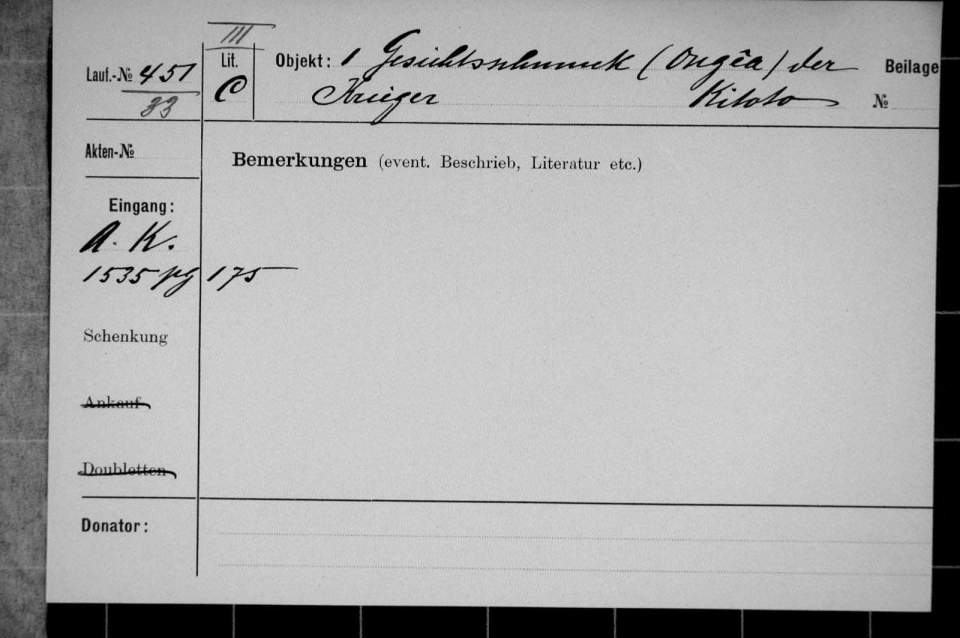 III
Lauf.-№ 451
33
Lit.
C
Objekt: 1 Gesichtsschmuck (Ongēa) der
Krieger Kitoto
Beilage
№
Akten-№
Bemerkungen (event. Beschrieb, Literatur etc.)
Eingang:
A. K.
1535 pg 175
Schenkung
Ankauf
Doubletten
Donator: